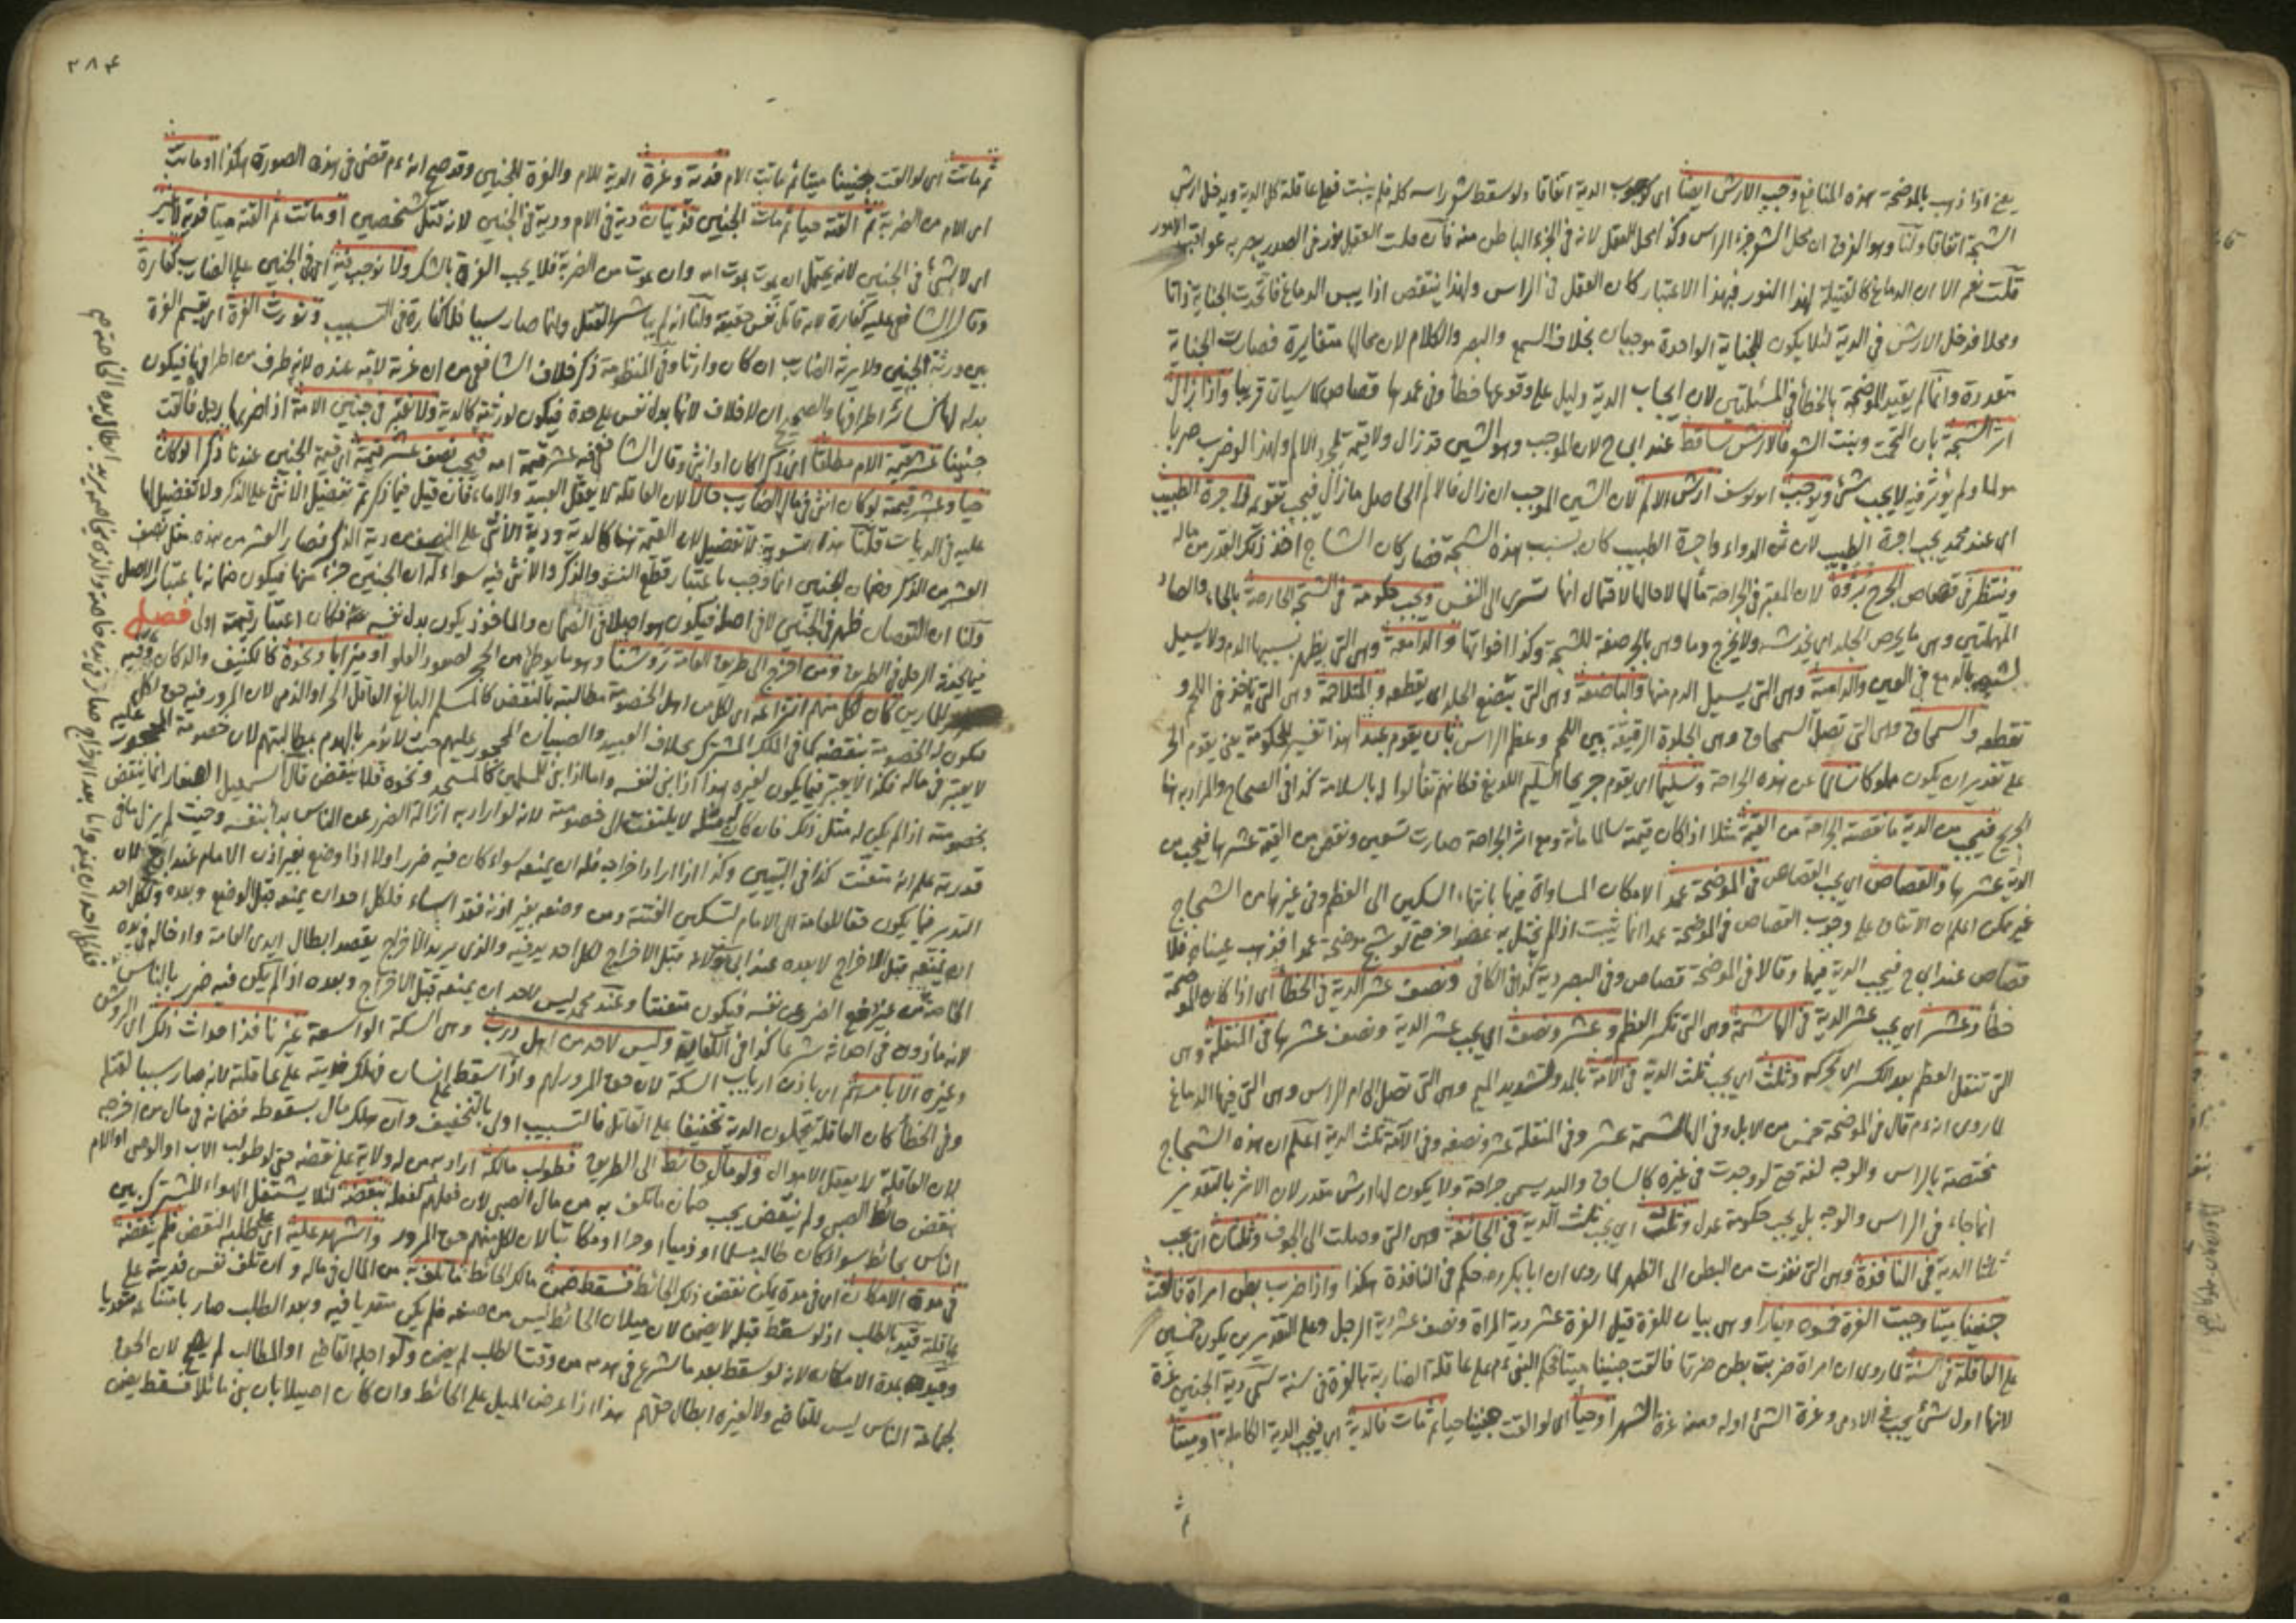 يعني اذا ذهب بالموضحة هذه المنافع وجب الارش ايضا اى كوجوب الدية اتفاقا ولو سقط شعر راسه كله فلم ينبت فعلى عاقلة كل الدية ويدخل ارش
الشجة اتفاقا ولنا وهو الفرق ان محل الشعر جزء الراس وكذا محل العقل لانه في الجزء الباطن منه فان قلت العقل نور في الصدر يبصر به عواقب الامور
قلت نعم الا ان الدماغ كالفتيلة لهذا النور فبهذا الاعتبار كان العقل في الراس ولهذا ينتقص اذا يبس الدماغ فاتحدت الجناية ذاتا
ومحلا فدخل الارش في الدية لئلا يكون للجناية الواحدة موجبان بخلاف السمع والبصر والكلام لان محالها متغايرة فصارت الجناية
متعددة وانما لم يقيد الموضحة بالخطأ في المسئلتين لان ايجاب الدية دليل على وقوعها خطأ وفي عمدها قصاص كما سياتى قريبا واذا زال
اثر الشجة بان التحمت ونبت الشعر فالارش ساقط عند ابى ح لان الموجب وهو الشين قد زال ولا قيمة لمجرد الالم ولهذا لو ضرب ضربا
مولما ولم يؤثر فيه لا يجب شئ ويوجب ابو يوسف ارش الالم لان الشين الموجب ان زال فالالم الحاصل ما زال فيجب تقويمه واجرة الطبيب
اى عند محمد يجب اجرة الطبيب لان ثمن الدواء واجرة الطبيب كان بسبب هذه الشجة فصار كان الشاج اخذ ذلك القدر من ماله
وينتظر في قصاص الجرح برؤه لان المعتبر في الجراحة مآلها لا حالها لاحتمال انها تسرى الى النفس ويجب حكومة في الشجة الحارصة بالحاء والصاد
المهملتين وهى ما يحرص الجلد اى يخدشه ولا يخرج دما وهى بالجر صفة للشجة وكذا اخواتها والدامعة وهى التى يظهر بسببها الدم ولا يسيل
تشبيه بالدمع في العين والدامية وهى التى يسيل الدم منها والباضعة وهى التى تبضع الجلد اى يقطعه والمتلاحمة وهى التى ياخذ في اللحم و
تقطعه والسمحاق وهى التى تصل السمحاق وهى الجلدة الرقيقة بين اللحم وعظم الراس بان يقوم عبدا هذا تفسير للحكومة يعنى يقوم الحر
على تقدير ان يكون مملوكا سالما عن هذه الجراحة وسليما اى يقوم جريحا السليم اللديغ فكانهم تفألوا له بالسلامة كذا في الصحاح والمراد به هنا
الجريح فيجب من الدية ما نقصته الجراحة من القيمة مثلا اذا كان قيمته سالما مائة ومع اثر الجراحة صارت تسعين ونقص من القيمة عشرها فيجب من
الدية عشرها والقصاص اى يجب القصاص في الموضحة عمدا لامكان المساواة فيها بانتهاء السكين الى العظم وفي غيرها من الشجاج
غير ممكن اعلم ان الاتفاق على وجوب القصاص في الموضحة عمدا انما يثبت اذا لم يختل به عضوا خر حتى لو شج موضحة عمدا فذهب عيناه فلا
قصاص عند ابى ح فيجب الدية فيهما وقالا في الموضحة قصاص وفي البصر دية كذا في الكافى ونصف عشر الدية في الخطأ اى اذا كان الموضحة
خطأ وعشر اى يجب عشر الدية في الهاشمة وهى التى تكسر العظم وعشر ونصف اى يجب عشر الدية ونصف عشرها في المنقلة وهى
التى تنقل العظم بعد الكسر اى تحركه وثلث اى يجب ثلث الدية في الآمة بالمد وتشديد الميم وهى التى تصل الى ام الراس وهى التى فيها الدماغ
لما روى انه ءم قال في الموضحة خمس من الابل وفي الهاشمة عشر وفي المنقلة عشر ونصفه وفي الآمة ثلث الدية اعلم ان هذه الشجاج
مختصة بالراس والوجه لغة حتى لو وجدت في غيره كالساق واليد يسمى جراحة ولا يكون لها ارش مقدر لان الاثر بالتقدير
انما جاء في الراس والوجه بل يجب حكومة عدل وثلث اى يجب ثلث الدية في الجائفة وهى التى وصلت الى الجوف وثلثان اى يجب
ثلثا الدية في النافذة وهى التى نفذت من البطن الى الظهر لما روى ان ابا بكر رضه حكم في النافذة هكذا واذا ضرب بطن امراة فالقت
جنينا ميتا وجبت الغرة خمسون دينارا وهى بيان للغرة قيل الغرة عشر دية المراة ونصف عشر دية الرجل وعلى التقديرين يكون خمسين
على العاقلة في السنة لما روى ان امراة ضربت بطن ضرتها فالقت جنينا ميتا فحكم النبى ءم على عاقلة الضاربة بالغرة في سنة سمى دية الجنين غرة
لانها اول شئ يجب في الادمى وغرة الشئ اوله ومنه غرة الشهر او حيا اى لو القت جنينا حيا ثم مات فالدية اى فيجب الدية الكاملة او ميتا
٣٨٤
ثم ماتت اى لو القت جنينا ميتا ثم ماتت الام فدية وغرة الدية للام والغرة للجنين وقد صح انه ءم قضى في هذه الصورة هكذا او ماتت
اى الام من الضربة ثم القته حيا ثم مات الجنين فديتان دية في الام ودية في الجنين لانه قتل شخصين او ماتت ثم القته ميتا فدية لا غير
اى لا شئ في الجنين لانه يحتمل ان يموت بموت امه وان يموت من الضربة فلا يجب الغرة بالشك ولا نوجب فيه اى في الجنين على الضارب كفارة
وقال الشافعى عليه كفارة لانه قاتل نفس حقيقة ولنا انه لم يباشر القتل وانما صار سببا فلا كفارة في التسبيب وتورث الغرة اى يقسم الغرة
بين ورثة الجنين ولا يرثه الضارب ان كان وارثا وفي المنظومة ذكر خلاف الشافعى من ان غرته لامه عنده لانه طرف من اطرافها فيكون
بدله لها كسائر اطرافها والصحيح ان لا خلاف لانها بدل نفس على حدة فيكون لورثته كالدية ولا نعتبر في جنين الامة اذا ضربها رجل فالقت
جنينا عشر قيمة الام مطلقا اى ذكرا كان او انثى وقال الشافعى فيه عشر قيمة امه فيجب نصف عشر قيمته اى قيمة الجنين عندنا ذكرا لو كان
حيا وعشر قيمته لو كان انثى في مال الضارب حالا لان العاقلة لا يعقل العبيد والاماء فان قيل فيما ذكرتم تفضيل الانثى على الذكر ولا تفضيل لها
عليه في الديات قلنا هذه التسوية لا تفضيل لان القيمة هنا كالدية ودية الانثى على النصف من دية الذكر فصار العشر من هذه مثل نصف
العشر من الذكر وضمان الجنين انما وجب باعتبار قطع النشو والذكر والانثى فيه سواء له ان الجنين جزء منها فيكون ضمانها باعتبار الاصل
ولنا ان النقصان ظهر في الجنين لا في اصله فيكون هو اصلا في الضمان والماخوذ يكون بدل نفسه فكان اعتبار قيمته اولى فصل
فيما يحدثه الرجل في الطريق ومن اخرج الى طريق العامة روشنا وهو ما يوطئ من الحجر لصعود العلو او ميزابا ونحوه كالكنيف والدكان وفيه
للمارين كان لكل منهم انتزاعه اى لكل من اهل الخصومة مطالبته بالنقض كالمسلم البالغ العاقل الحر او الذمى لان المرور فيه حق لكل
فيكون له الخصومة بنقضه كما في الملك المشترك بخلاف العبيد والصبيان المحجور عليهم حيث لا يؤمر بالهدم بمطالبتهم لان خصومة المحجور عليه
لا يعتبر في ماله فكذا لا يعتبر فيما يكون لغيره هذا اذا بنى لنفسه واما اذا بنى للمسلمين كالمسجد ونحوه فلا ينقض قال اسمعيل الصفار انما ينقض
بخصومته اذا لم يكن له مثل ذلك فان كان له مثله لا يلتفت الى خصومته لانه لو اراد به ازالة الضرر عن الناس بدأ بنفسه وحيث لم يزل ما في
قدرته علم انه متعنت كذا في التبيين وكذا اذا اراد اخراجه فله ان يمنعه سواء كان فيه ضرر اولا اذا وضع بغير اذن الامام عند ابى ح لان
التدبير فيما يكون حقا للعامة الى الامام لتسكين الفتنة ومن وضعه بغير اذنه فقد اساء فلكل احد ان يمنعه قبل الوضع وبعده ولكل احد
ان يمنعه قبل الاخراج لا بعده عند ابى يوسف لانه قبل الاخراج لكل احد يد فيه والذى يريد الاخراج يقصد ابطال ايدى العامة وادخاله في يده
الخاصة من غير دفع الضرر عن نفسه فيكون متعنتا وعند محمد ليس لاحد ان يمنعه قبل الاخراج وبعده اذا لم يكن فيه ضرر بالناس
لانه ماذون في احداثه شرعا كذا في الكفاية وليس لاحد من اهل درب وهى السكة الواسعة غير نافذ احداث ذلك اى الروشن
وغيره الا باذنهم اى باذن ارباب السكة لان حق المرور لهم واذا سقط على انسان فهلك فديته على عاقلته لانه صار سببا لقتله
وفي الخطأ كان العاقلة يتحملون الدية تخفيفا على القاتل فالتسبيب اولى بالتخفيف وان هلك مال بسقوطه فضمانه في مال من اخرجه
لان العاقلة لا يعقل الاموال ولو مال حائط الى الطريق فطولب مالكه اراد به من له ولاية على نقضه حتى لو طولب الاب او الوصى او الام
بنقض حائط الصبى ولم ينقض يجب ضمان ما تلف به من مال الصبى لان فعلهم كفعله بنقضه لئلا يشتغل الهواء المشترك بين
الناس بحائط سواء كان طالبه مسلما او ذميا او حرا او مكاتبا لان لكل منهم حق المرور واشهد عليه اى على طلبه النقض فلم ينقضه
في مدة الامكان اى في مدة يمكن نقض ذلك الحائط فسقط ضمن مالك الحائط ما تلف به من المال في ماله وان تلف نفس فديته على
عاقلته قيد بالطلب اذ لو سقط قبله لا يضمن لان ميلان الحائط ليس من صنعه فلم يكن متعديا فيه وبعد الطلب صار بامتناعه متعديا
وقيد بمدة الامكان لانه لو سقط بعد ما شرع في هدمه من وقت الطلب لم يضمن ولو اجله القاضى او المطالب لم يصح لان الحق
لجماعة الناس ليس للقاضى ولا لغيره ابطال حقهم هذا اذا عرض الميل على الحائط وان كان اصيلا بان بنى مائلا فسقط يضمن